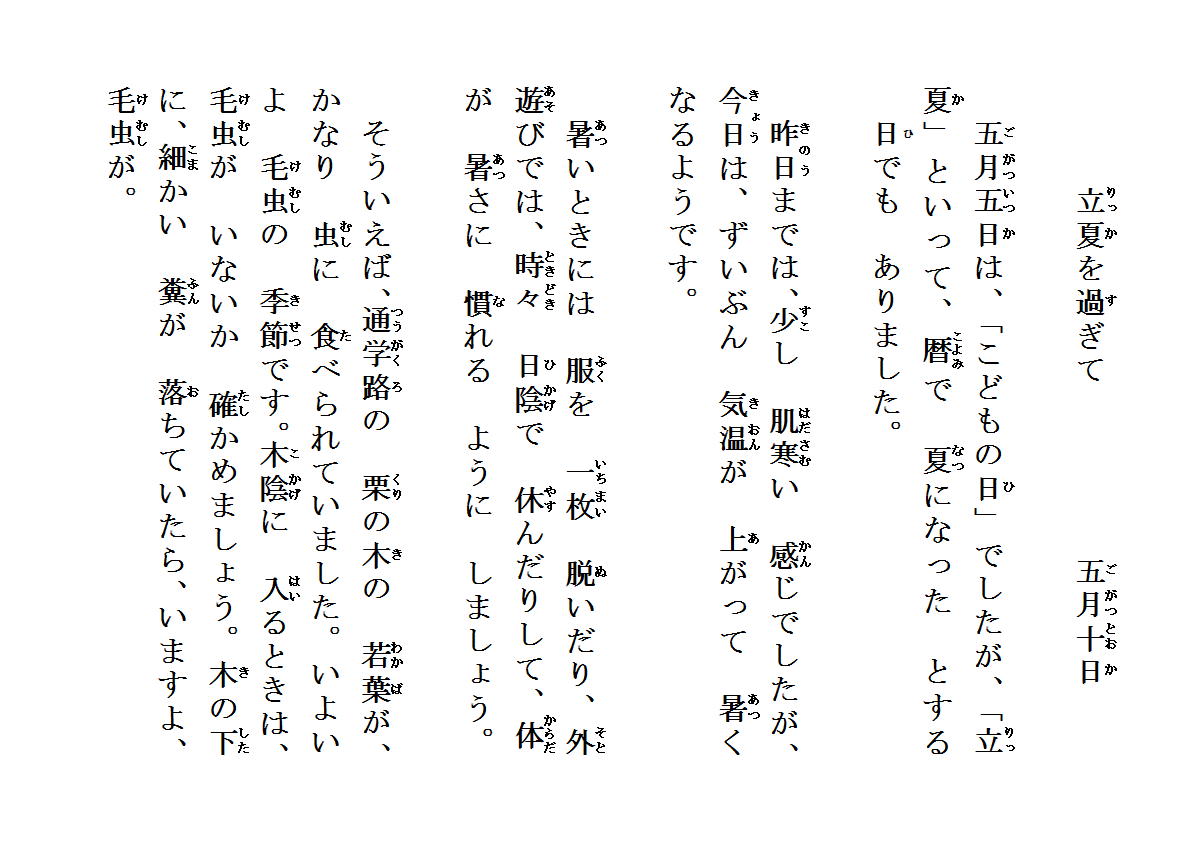 立夏を過ぎて　五月十日
五月五日は、「こどもの日」でしたが、「立
夏」といって、暦で　夏になった　とする
日でも　ありました。
昨日までは、少し　肌寒い　感じでしたが、
今日は、ずいぶん　気温が　上がって　暑く
なるようです。
暑いときには　服を　一枚　脱いだり、外
遊びでは、時々　日陰で　休んだりして、体
が　暑さに　慣れる　ように　しましょう。
そういえば、通学路の　栗の木の　若葉が、
かなり　虫に　食べられていました。いよい
よ　毛虫の　季節です。木陰に　入るときは、
毛虫が　いないか　確かめましょう。木の下
に、細かい　糞が　落ちていたら、いますよ、
毛虫が。